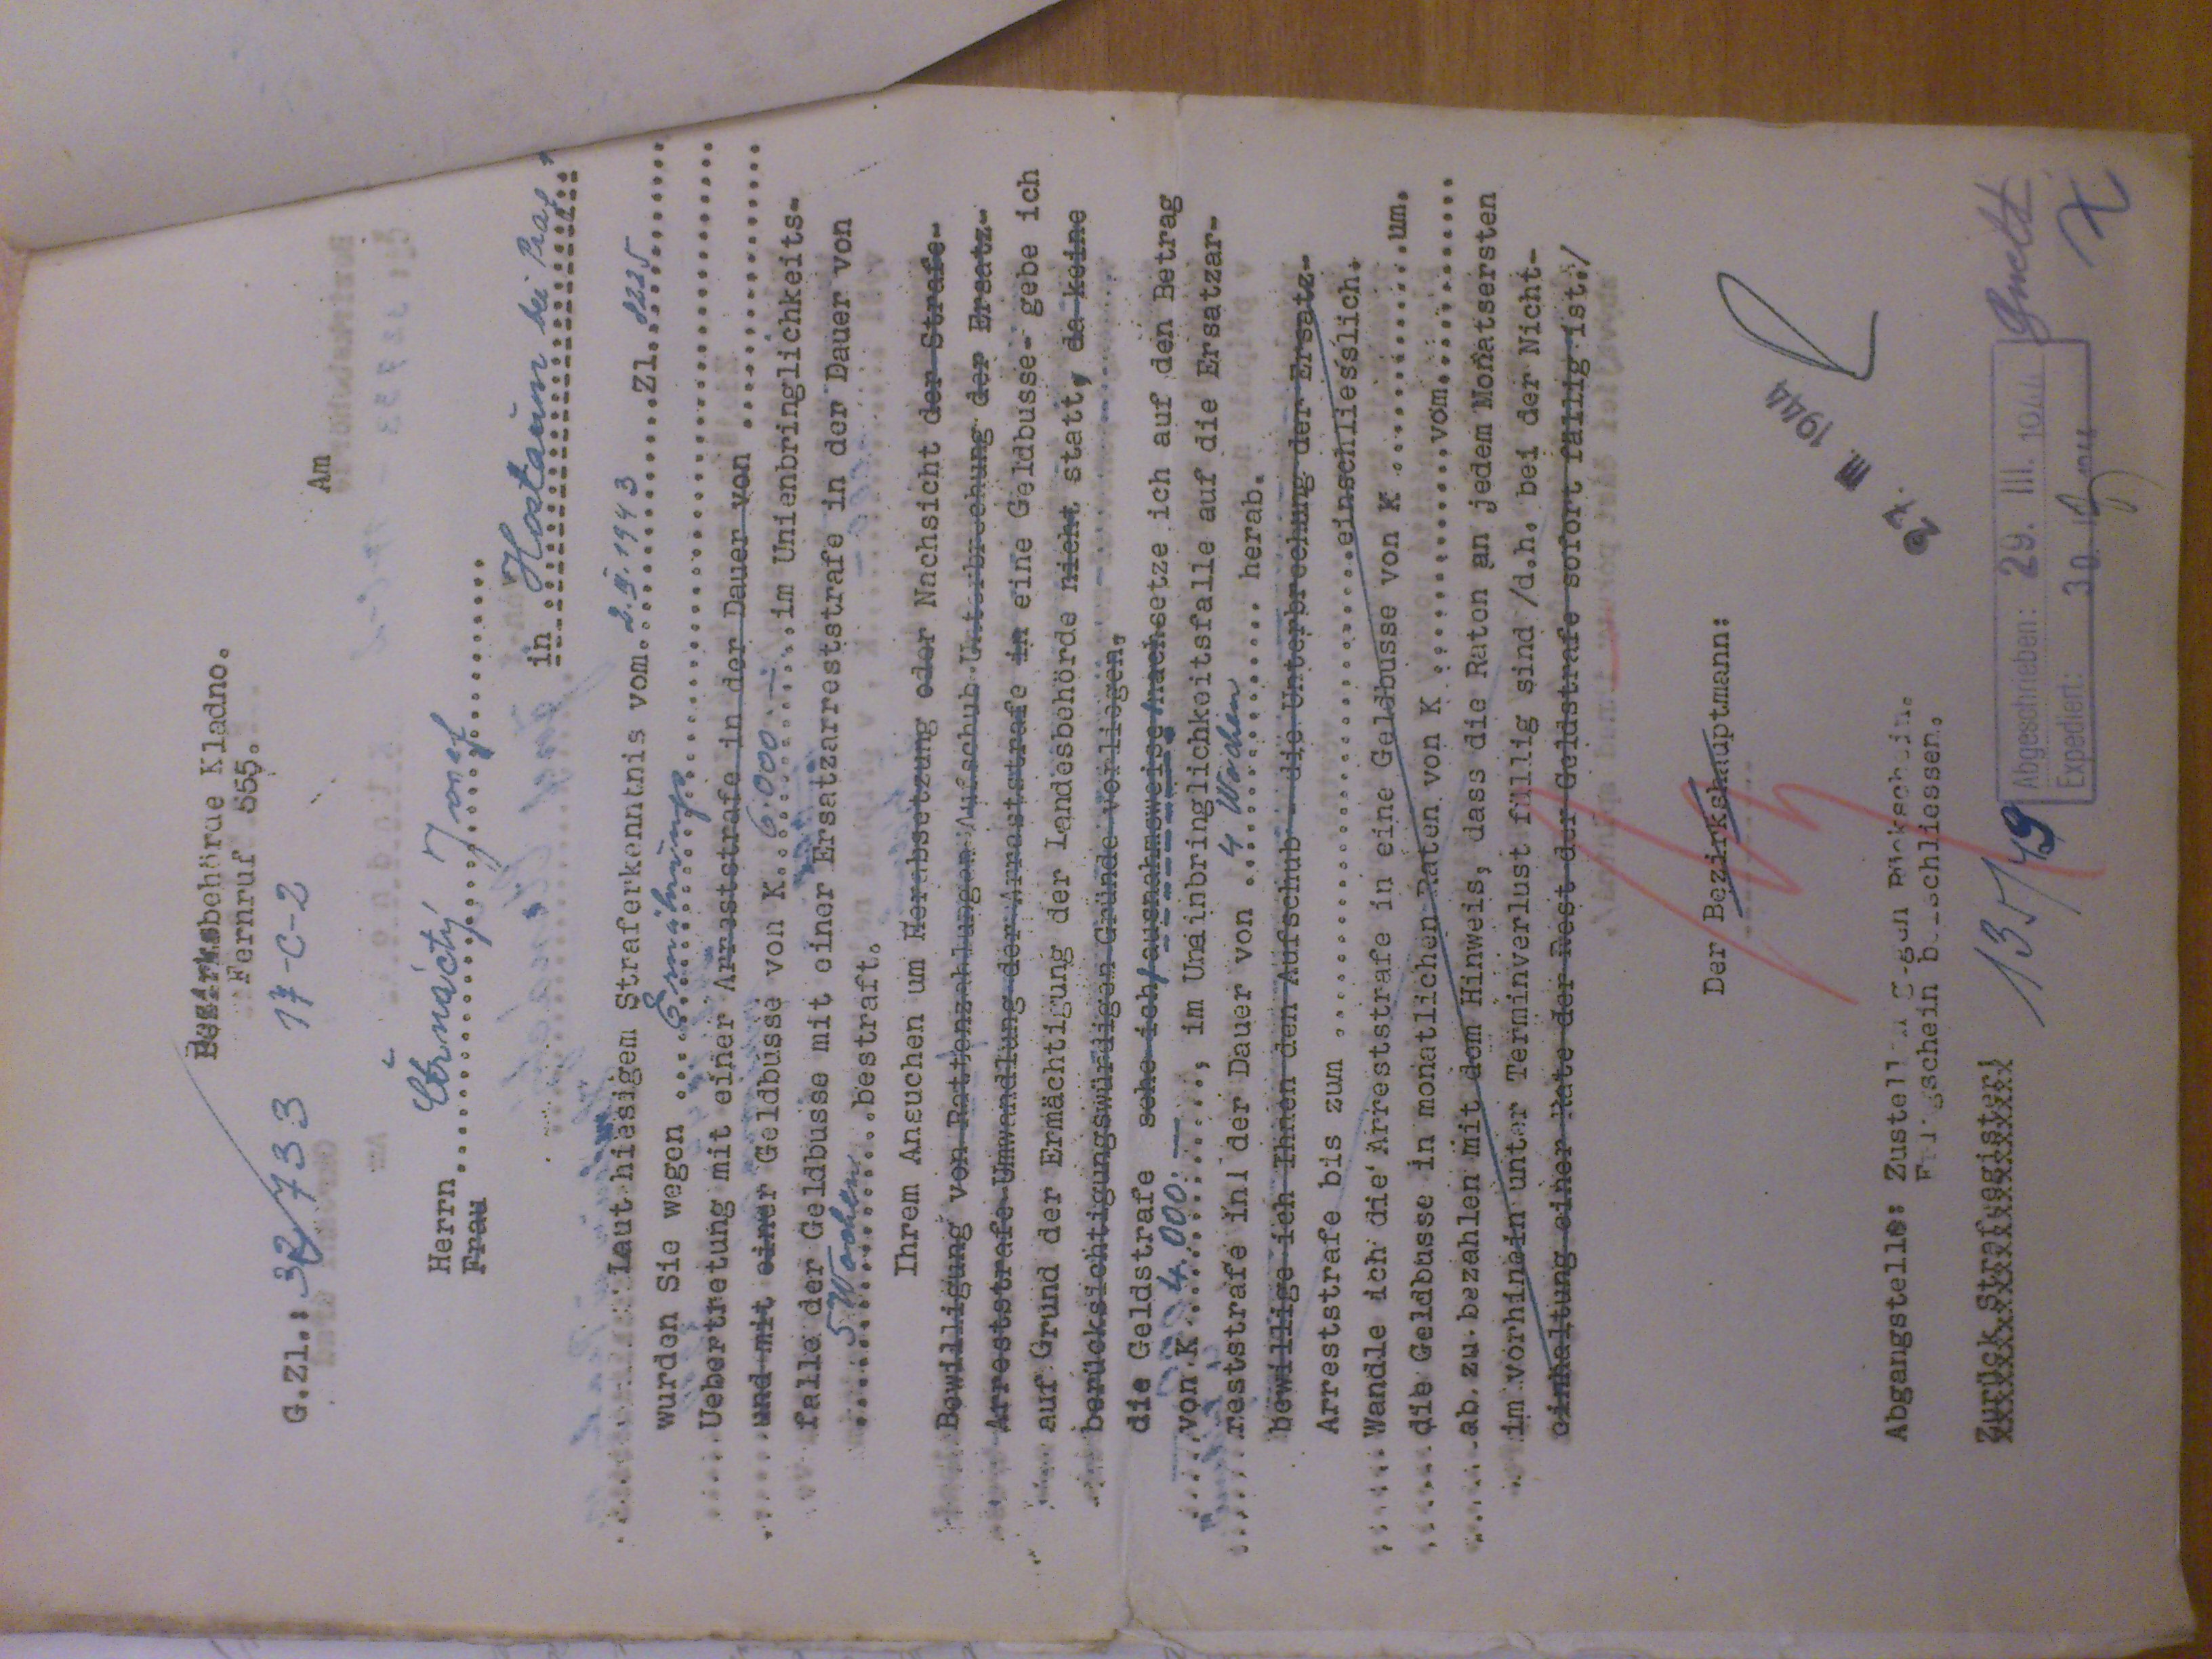 Bezirksbehörde Kladno.
Fernruf 555.
G.Zl.: 32/733 17-C-2
Am
Herrn Čtrnáctý Josef
Frau
in Hostaun bei Prag
Laut hiesigem Straferkenntnis vom. 2.III.1943 Zl. 8225
wurden Sie wegen .... Ernährungs
Uebertretung mit einer Arreststrafe in der Dauer von ................
und mit einer Geldbusse von K.. 6.000.— ..im Unienbringlichkeits-
falle der Geldbusse mit einer Ersatzarreststrafe in der Dauer von
5 Wochen ...bestraft.
Ihrem Ansuchen um Herabsetzung oder Nachsicht der Strafe-
Bewilligung von Rattenzahlungen Aufschub Unterbrechung der Ersatz-
Arreststrafe-Umwandlung der Arreststrafe in eine Geldbusse- gebe ich
auf Grund der Ermächtigung der Landesbehörde nicht statt, da keine
berücksichtigungswürdigen Gründe vorliegen,
die Geldstrafe sehe ich/ausnahmsweise/nachsetze ich auf den Betrag
von K 4.000.— , im Uneinbringlichkeitsfalle auf die Ersatzar-
reststrafe in der Dauer von 4 Wochen herab.
bewillige ich Ihnen den Aufschub - die Unterbrechung der Ersatz-
Arreststrafe bis zum ............................einschliesslich.
Wandle ich die Arreststrafe in eine Geldbusse von K .............um.
die Geldbusse in monatlichen Raten von K .............vom............
ab zu bezahlen mit dem Hinweis, dass die Raten an jedem Monatsersten
im vorhinein unter Terminverlust fällig sind /d.h. bei der Nicht-
einhaltung einer Rate der Rest der Geldstrafe sofort fällig ist./
Der Bezirkshauptmann:
27. III 1944
Abgangstelle: Zustellen gegen Rückschein.
Erlagschein beischliessen.
Zurück Strafregister!
135/49
Abgeschrieben: 29. III. 1944
Expediert: 30. III. 1944